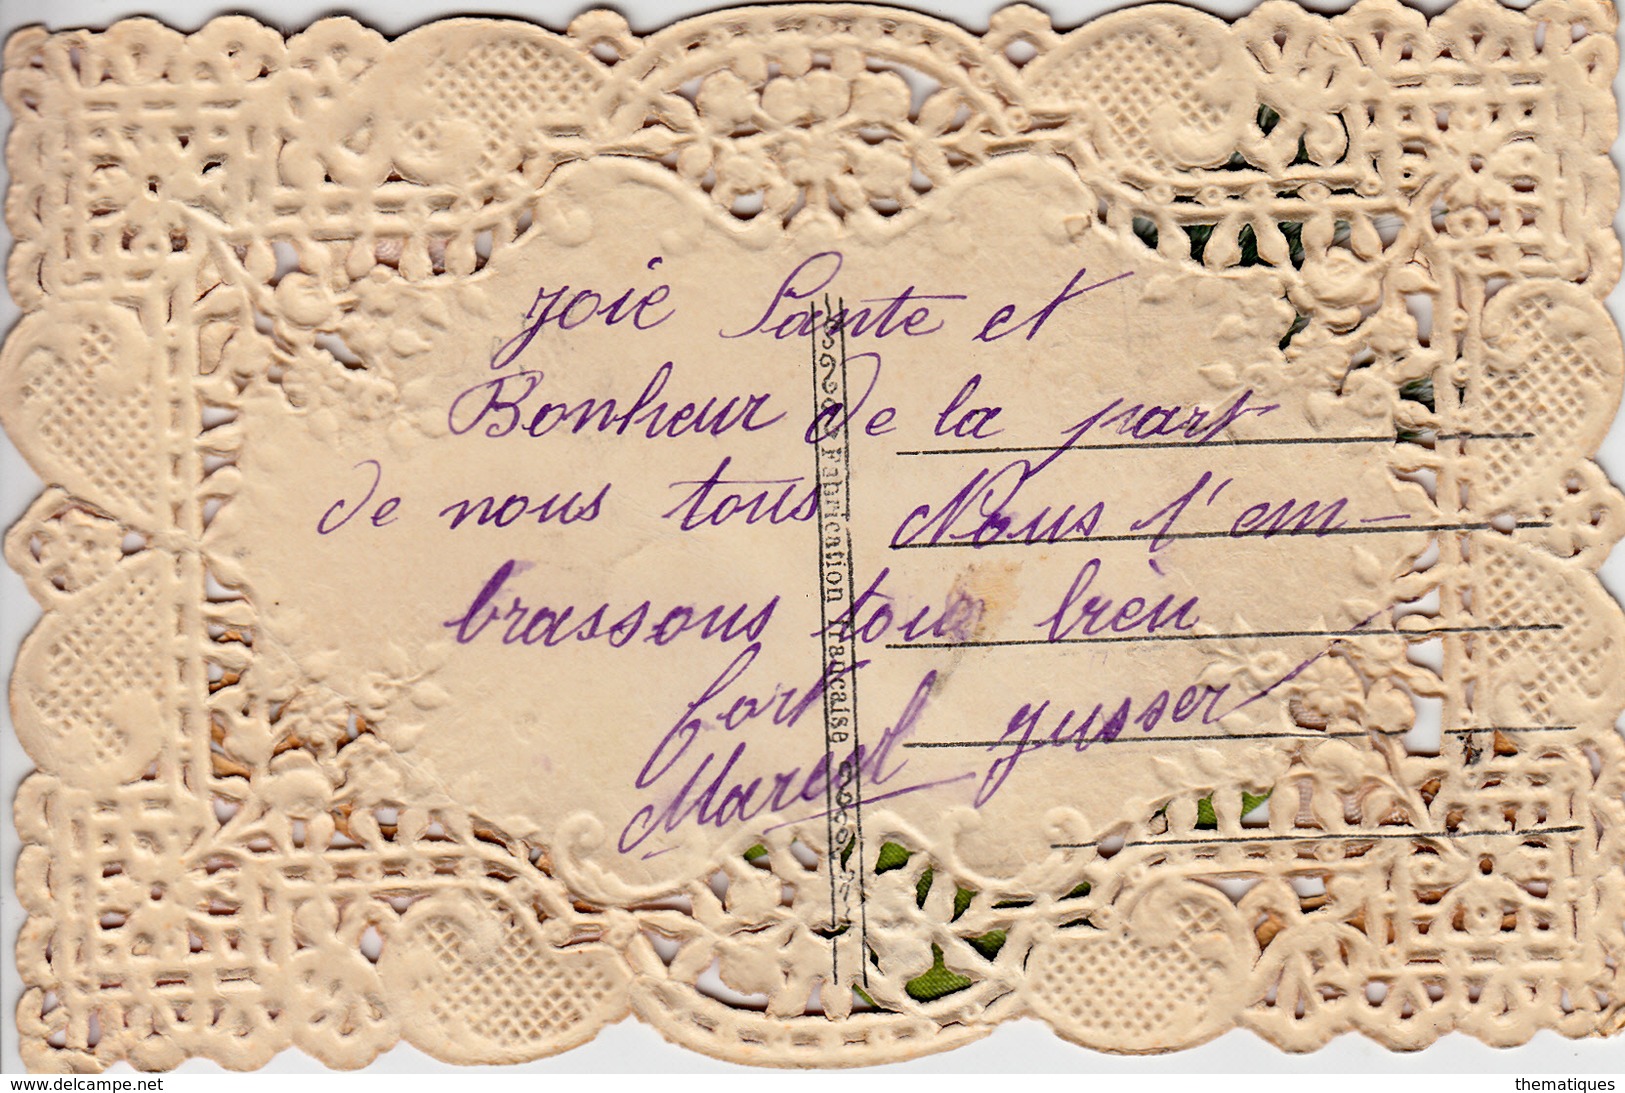 Joie Sante et
Bonheur de la part
de nous tous Nous t'em-
brassons tous bien
fort
Marcel Jusser
Fabrication française
www.delcampe.net
thematiques